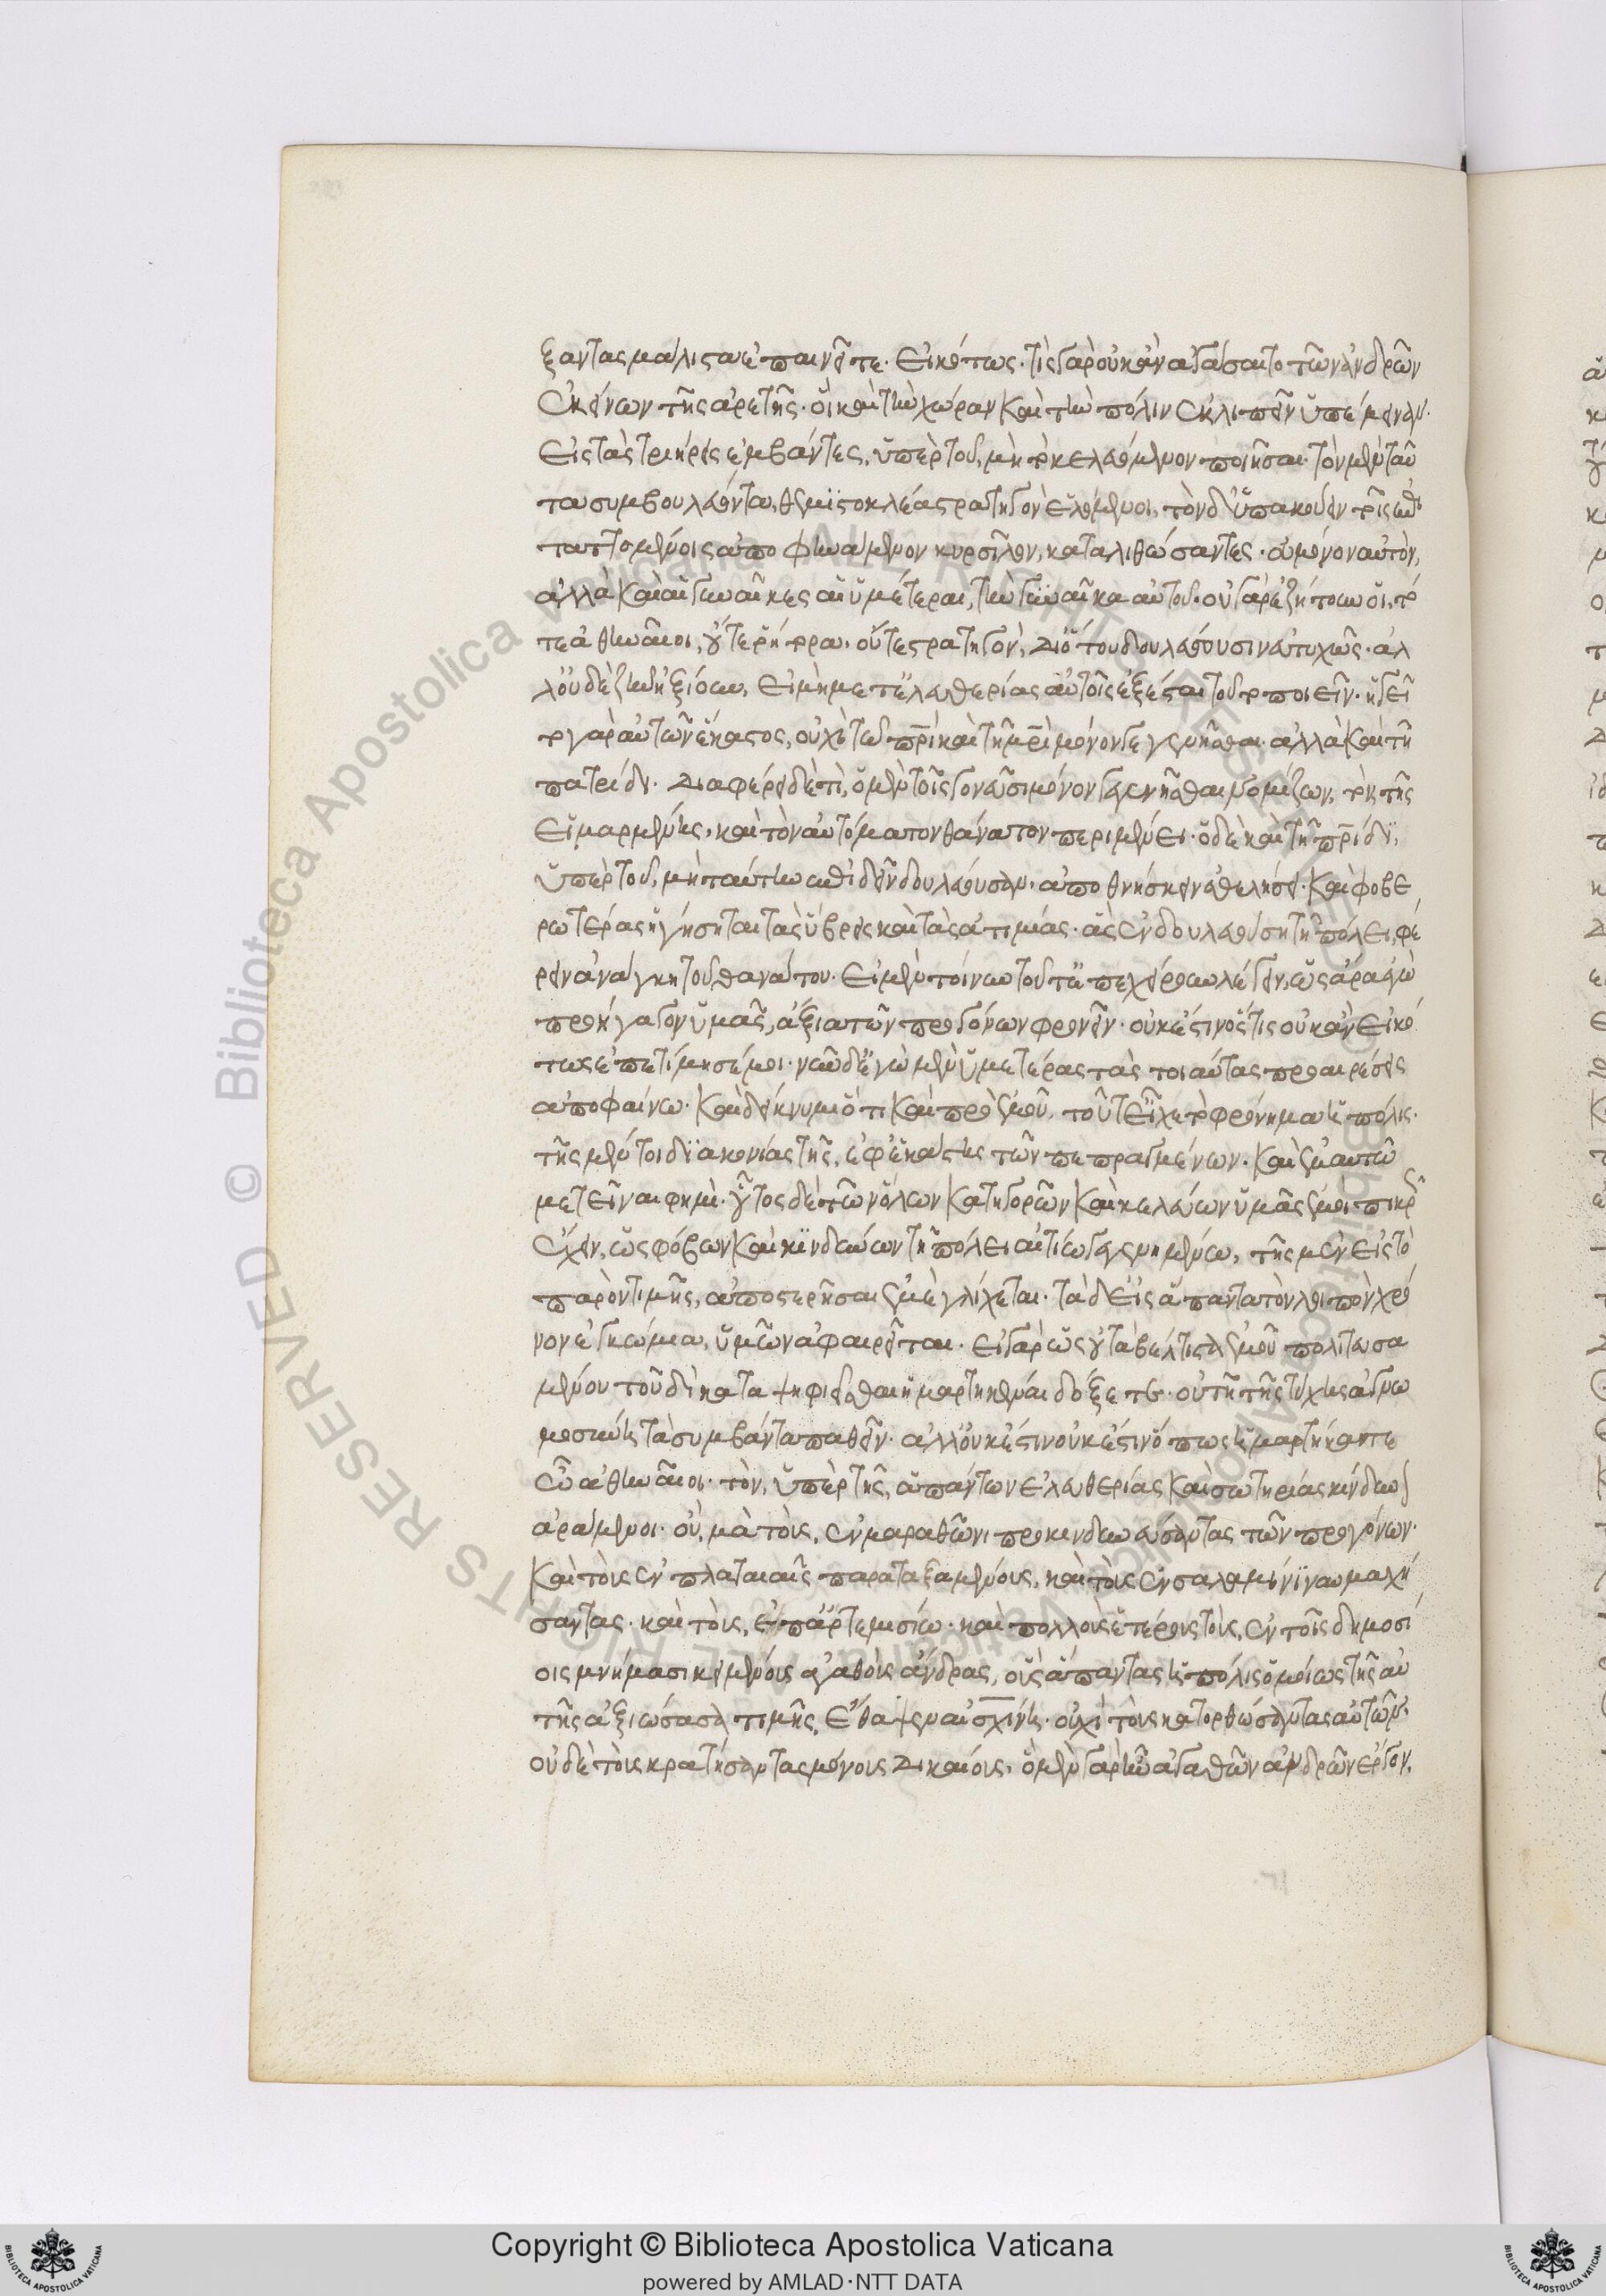 ξαντας μάλιστα ἐπαινεῖτε. εἰκότως. τίς γὰρ οὐκ ἂν ἀγάσαιτο τῶν ἀνδρῶν
ἐκείνων τῆς ἀρετῆς. οἳ καὶ τὴν χώραν καὶ τὴν πόλιν ἐκλιπεῖν ὑπέμειναν.
εἰς τὰς τριήρεις ἐμβάντες, ὑπὲρ τοῦ, μὴ τὸ κελευόμενον ποιῆσαι. τὸν μὲν ταῦ
τα συμβουλεύσαντα, θεμιστοκλέα στρατηγὸν ἑλόμενοι, τὸν δ' ὑπακούειν τοῖς ἐπι
ταττομένοις ἀποφηνάμενον κυρσῖλον, καταλιθώσαντες. οὐ μόνον αὐτὸν,
ἀλλὰ καὶ αἱ γυναῖκες αἱ ὑμέτεραι, τὴν γυναῖκα αὐτοῦ. οὐ γὰρ ἐζήτουν οἱ τό
τε ἀθηναῖοι, οὔτε ῥήτορα. οὔτε στρατηγὸν, δι' ὅτου δουλεύουσιν εὐτυχῶς. ἀλ
λ' οὐδὲ ζῆν ἠξίουν, εἰ μὴ μετ' ἐλευθερίας αὐτοῖς ἐξέσται τοῦτο ποιεῖν. ἡγεῖ
το γὰρ αὐτῶν ἕκαστος, οὐχὶ τῷ πρὶ καὶ τῇ μρὶ μόνον γεγενῆσθαι. ἀλλὰ καὶ τῇ
πατρίδι. διαφέρει δὲ τί, ὁ μὲν τοῖς γονεῦσι μόνον γεγενῆσθαι νομίζων, τὸν τῆς
εἱμαρμένης, καὶ τὸν αὐτόματον θάνατον περιμένει. ὁ δὲ καὶ τῇ πρίδι,
ὑπὲρ τοῦ, μὴ ταύτην ἐπιδεῖν δουλεύουσαν. ἀποθνήσκειν ἐθελήσει. καὶ φοβε
ρωτέρας ἡγήσηται τὰς ὕβρεις καὶ τὰς ἀτιμίας. ἃς ἐν δουλευούσῃ τῇ πόλει, φέ
ρειν ἀνάγκη τοῦ θανάτου. εἰ μὲν τοίνυν τοῦτ' ἐπεχείρουν λέγειν, ὡς ἄρα ἐγὼ
προήγαγον ὑμᾶς, ἄξια τῶν προγόνων φρονεῖν. οὐκ ἔστιν ὅστις οὐκ ἂν εἰκό
τως ἐπιτίμησέ μοι. νῦν δ' ἐγὼ μὲν ὑμετέρας τὰς τοιαύτας προαιρέσεις
ἀποφαίνω. καὶ δείκνυμι ὅτι καὶ πρὸ ἐμοῦ, τοῦτ' εἶχε τὸ φρόνημα ἡ πόλις.
τῆς μέντοι διακονίας τῆς, ἐφ' ἑκάστης τῶν πεπραγμένων. καὶ ἐμαυτῷ
μετεῖναι φημί. οὗτος δὲ τῶν ὅλων κατηγορῶν καὶ κελεύων ὑμᾶς ἐμοὶ πικρῶς
ἔχειν, ὡς φόβων καὶ κινδύνων τῇ πόλει αἰτίῳ γεγενημένῳ, τῆς μὲν εἰς τὸ
παρὸν τιμῆς, ἀποστερῆσαι ἐμὲ γλίχεται. τὰ δ' εἰς ἅπαντα τὸν λοιπὸν χρό
νον ἐγκώμια, ὑμῶν ἀφαιρεῖται. εἰ γὰρ ὡς οὐ τὰ βέλτιστα ἐμοῦ πολιτευσα
μένου τουδὶ καταψηφιεῖσθαι ἡμαρτηκέναι δόξετε. οὐ τῇ τῆς τύχης ἀγνω
μοσύνῃ τὰ συμβάντα παθεῖν. ἀλλ' οὐκ ἔστιν οὐκ ἔστιν ὅπως ἡμάρτηκατε
ὦ ἀθηναῖοι. τὸν, ὑπὲρ τῆς, ἁπάντων ἐλευθερίας καὶ σωτηρίας κίνδυνον
ἀράμενοι. οὐ, μὰ τοὺς, ἐν μαραθῶνι προκινδυνεύσαντας τῶν προγόνων.
καὶ τοὺς ἐν πλαταιαῖς παραταξαμένους, καὶ τοὺς ἐν σαλαμῖνι ναυμαχή
σαντας. καὶ τοὺς, ἐπ' ἀρτεμισίῳ. καὶ πολλοὺς ἑτέρους τοὺς, ἐν τοῖς δημοσί
οις μνήμασι κειμένους ἀγαθοὺς ἄνδρας, οὓς ἅπαντας ἡ πόλις ὁμοίως τῆς αὐ
τῆς ἀξιώσασα τιμῆς, ἔθαψεν αἰσχίνη. οὐχὶ τοὺς κατορθώσαντας αὐτῶν.
οὐδὲ τοὺς κρατήσαντας μόνους δικαίως. ὃ μὲν γὰρ ἦν ἀγαθῶν ἀνδρῶν ἔργον,
Copyright © Biblioteca Apostolica Vaticana
powered by AMLAD·NTT DATA